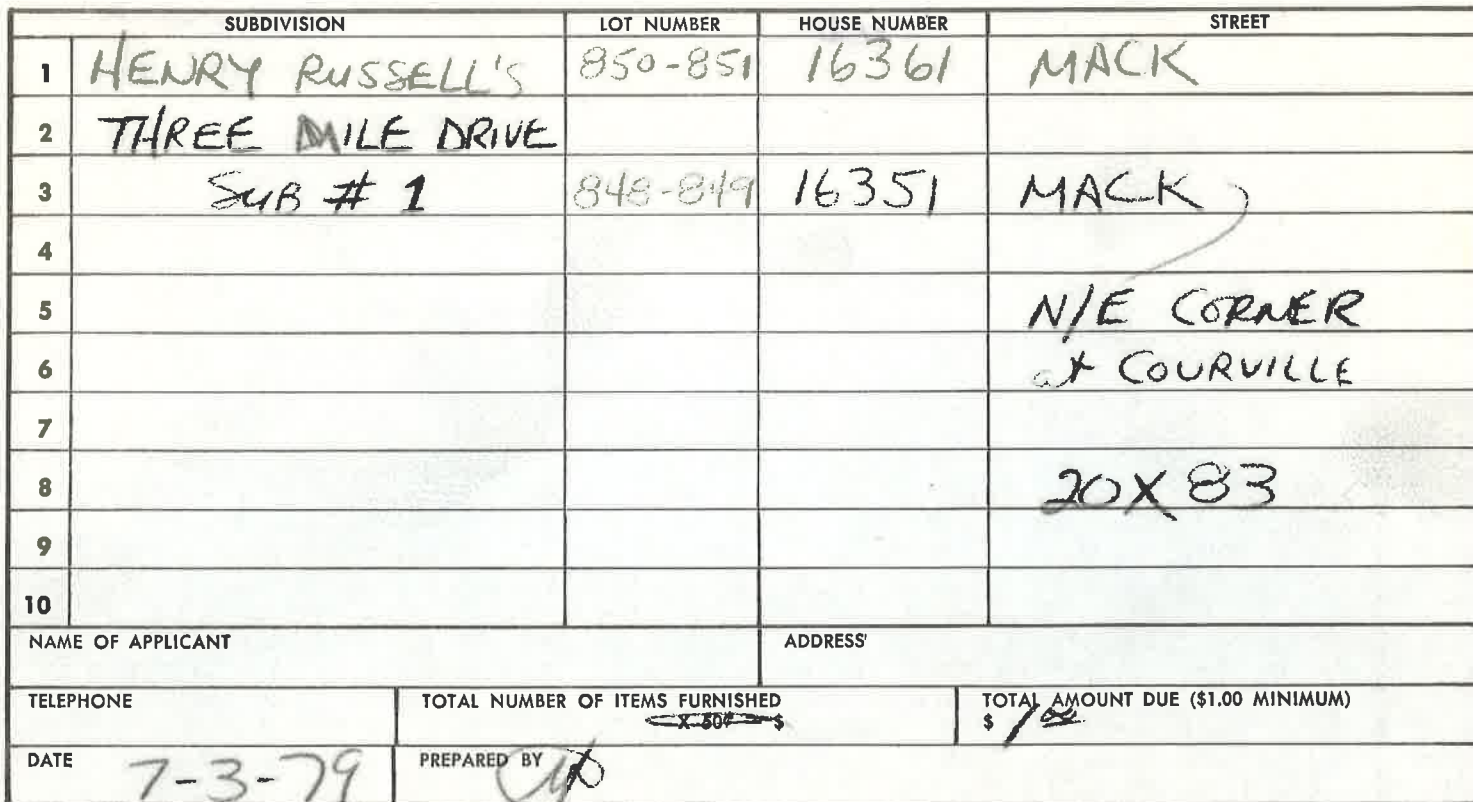 SUBDIVISION LOT NUMBER HOUSE NUMBER STREET
1 HENRY RUSSELL'S 850-851 16361 MACK
2 THREE MILE DRIVE
3 SUB # 1 848-849 16351 MACK
4
5 N/E CORNER
6 at COURVILLE
7
8 20 X 83
9
10
NAME OF APPLICANT ADDRESS
TELEPHONE TOTAL NUMBER OF ITEMS FURNISHED TOTAL AMOUNT DUE ($1.00 MINIMUM)
X 50¢ $ $ 1.00
DATE 7-3-79 PREPARED BY